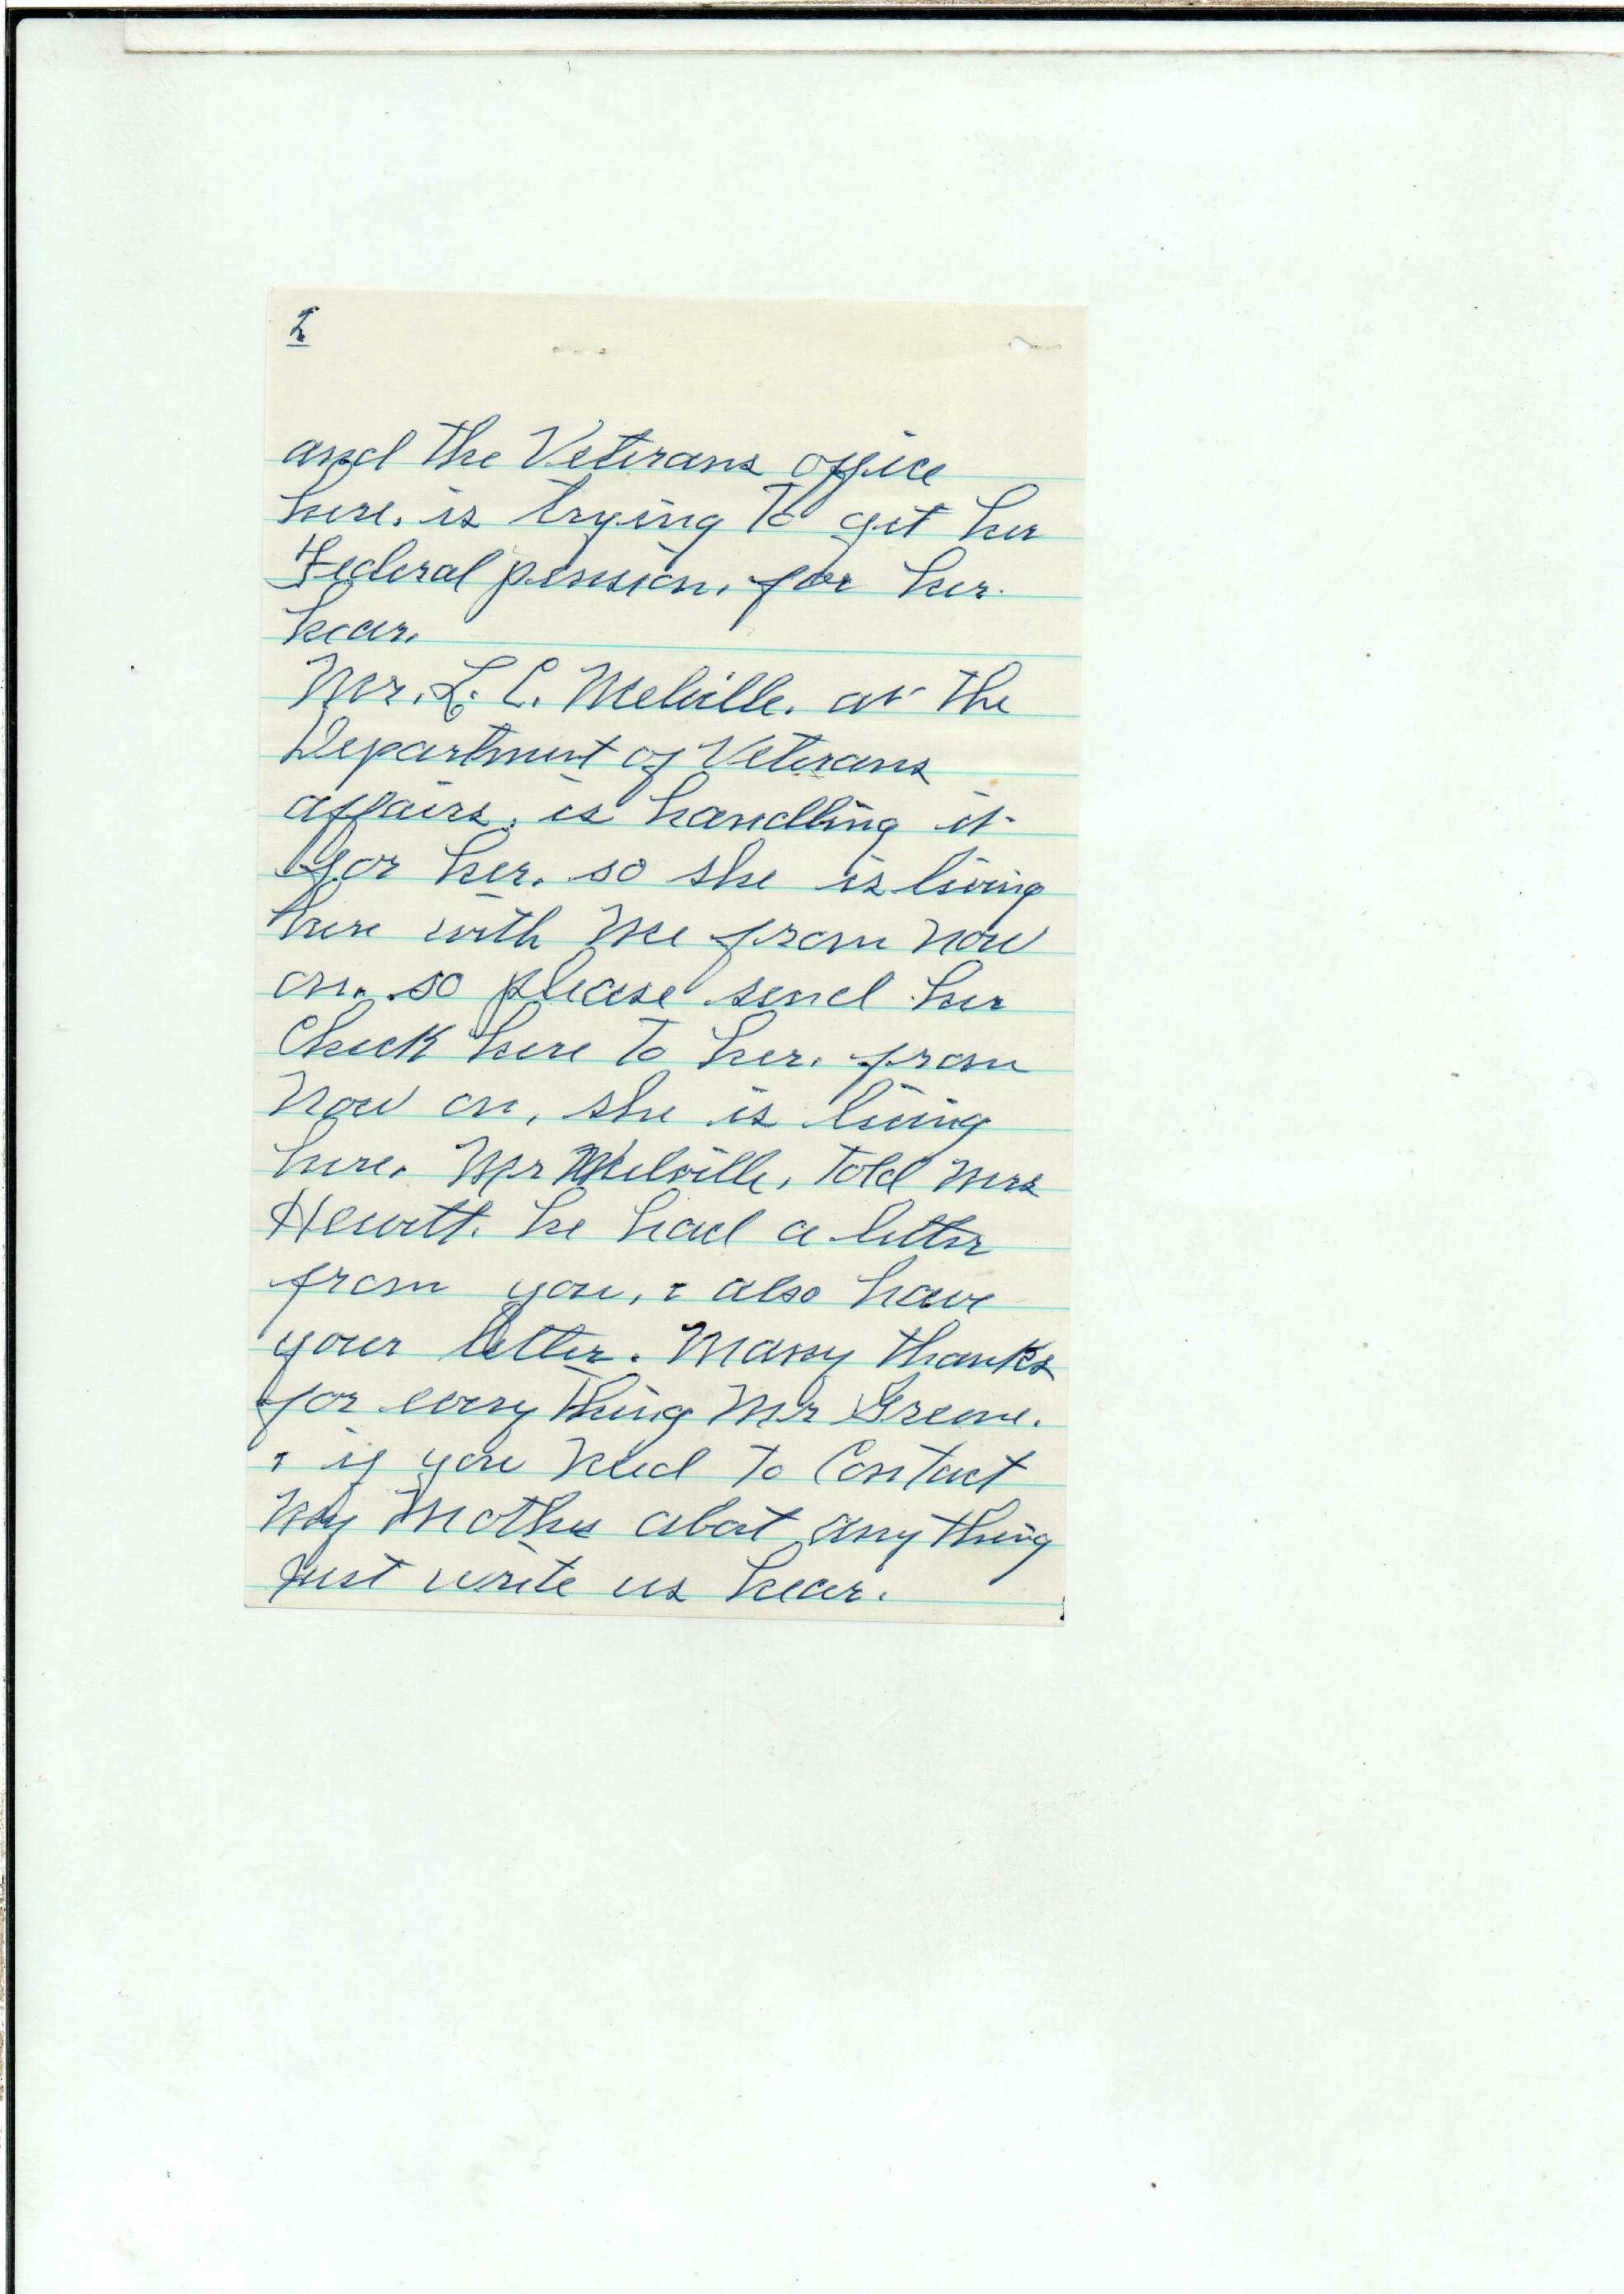 2
and the Veterans office
here. is trying to get her
Federal pension. for her.
hear.
Mr. L. C. Melville. at the
Department of Veterans
affairs. is handling it
for her. so she is living
here with me from now
on. so please send her
Check here to her. from
now on, she is living
here. Mr Melville, told Mrs
Hewett. he had a letter
from you, & also have
your letter. Many thanks
for every thing Mr Greene.
& if you need to Contact
my Mother abot any thing
Just write us hear.